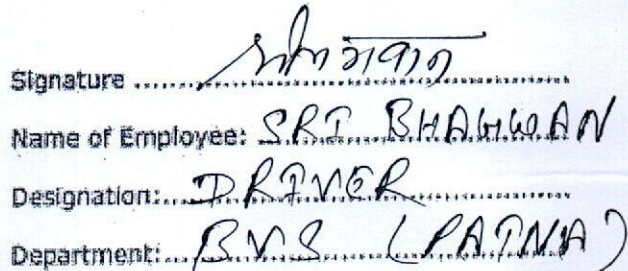 Signature श्री भगवान
Name of Employee: SRI BHAGWAN
Designation: DRIVER
Department: BVS (PATNA)